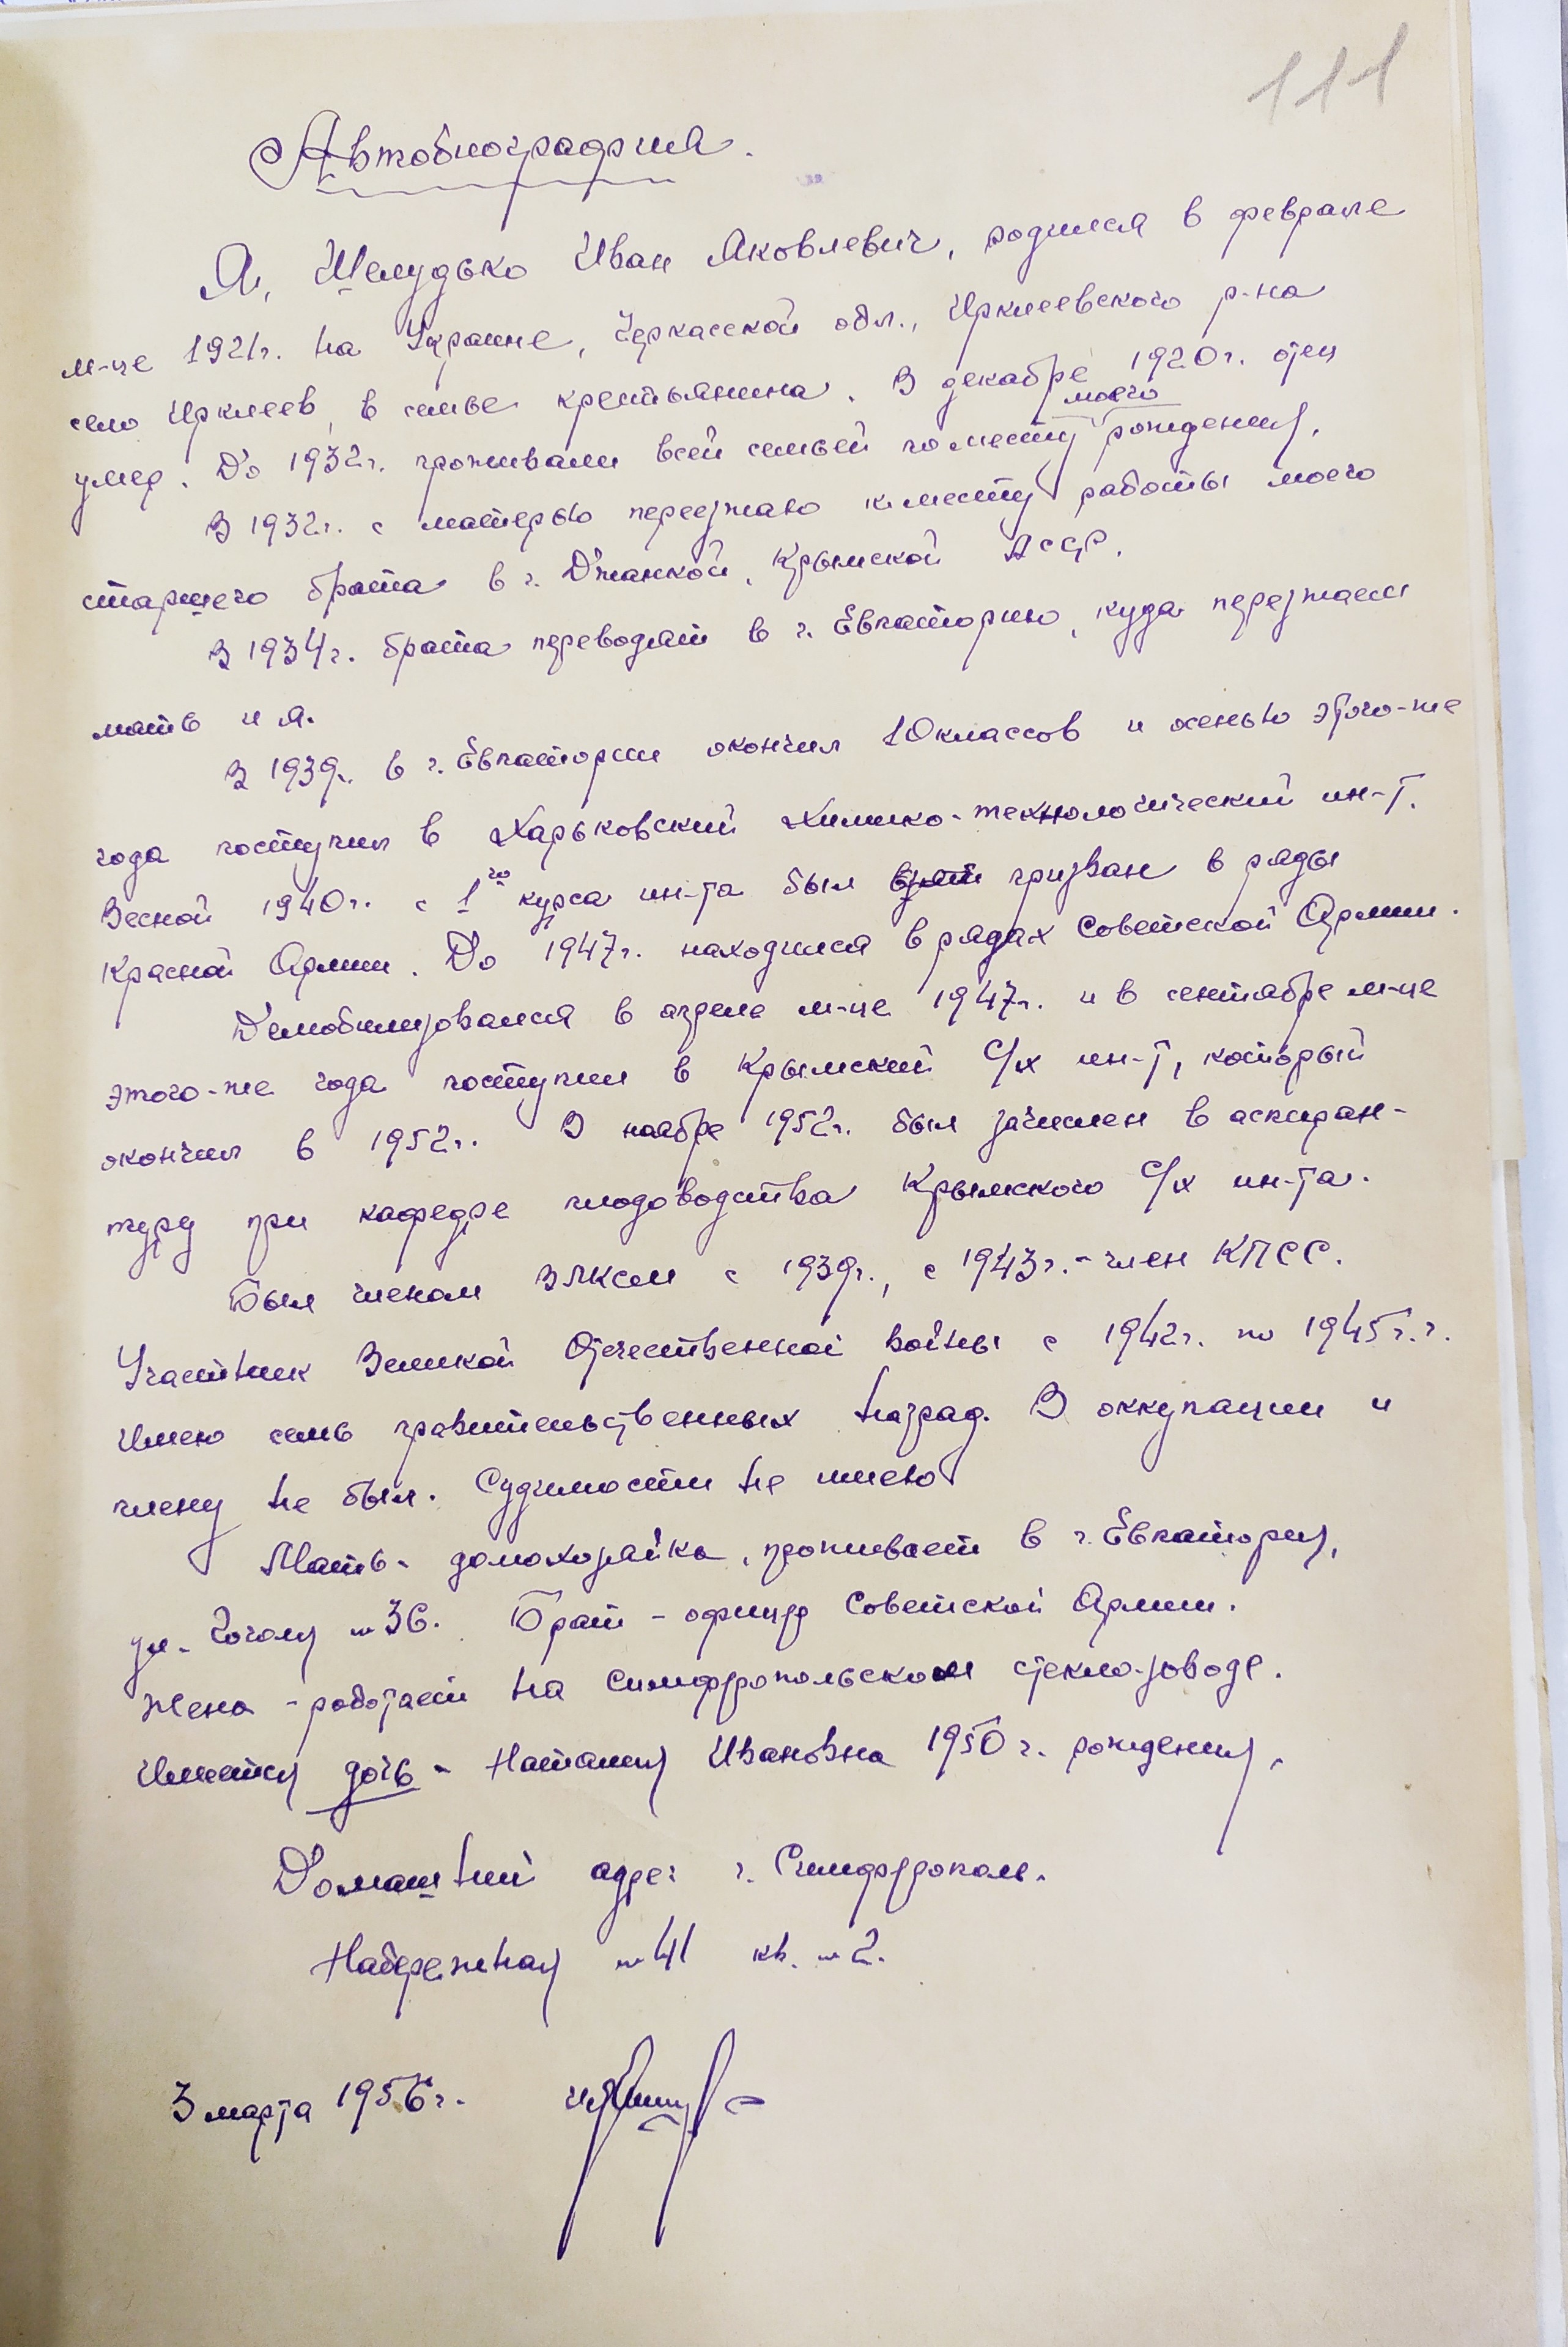 111
Автобиография.
Я, Шелудько Иван Яковлевич, родился в феврале
м-це 1921г. на Украине, Черкасской обл., Ирклеевского р-на
село Ирклеев, в семье крестьянина. В декабре 1920г. отец
моего
умер. До 1932г. проживали всей семьей по месту рождения.
В 1932г. с матерью переезжаю к месту работы моего
старшего брата в г. Джанкой, Крымской АССР.
В 1934г. брата переводят в г. Евпаторию, куда переезжаем
мать и я.
В 1939г. в г. Евпатории окончил 10 классов и осенью этого-же
года поступил в Харьковский Химико-технологический ин-т.
Весной 1940г. с 1го курса ин-та был взят призван в ряды
Красной Армии. До 1947г. находился в рядах Советской Армии.
Демобилизовался в апреле м-це 1947г. и в сентябре м-це
этого-же года поступил в Крымский с/х ин-т, который
окончил в 1952г. В ноябре 1952г. был зачислен в аспиран-
туру при кафедре плодоводства Крымского с/х ин-та.
Был членом ВЛКСМ с 1939г., с 1943г. - член КПСС.
Участник Великой Отечественной войны с 1942г. по 1945г.г.
Имею семь правительственных наград. В оккупации и
плену не был. Судимости не имею
Мать - домохозяйка, проживает в г. Евпатория,
ул. Гоголя № 36. Брат - офицер Советской Армии.
Жена - работает на Симферопольском стекло-заводе.
Имеется дочь - Наталия Ивановна 1950г. рождения.
Домашний адрес г. Симферополь.
Набережная № 41 кв. № 2.
3 марта 1956г.